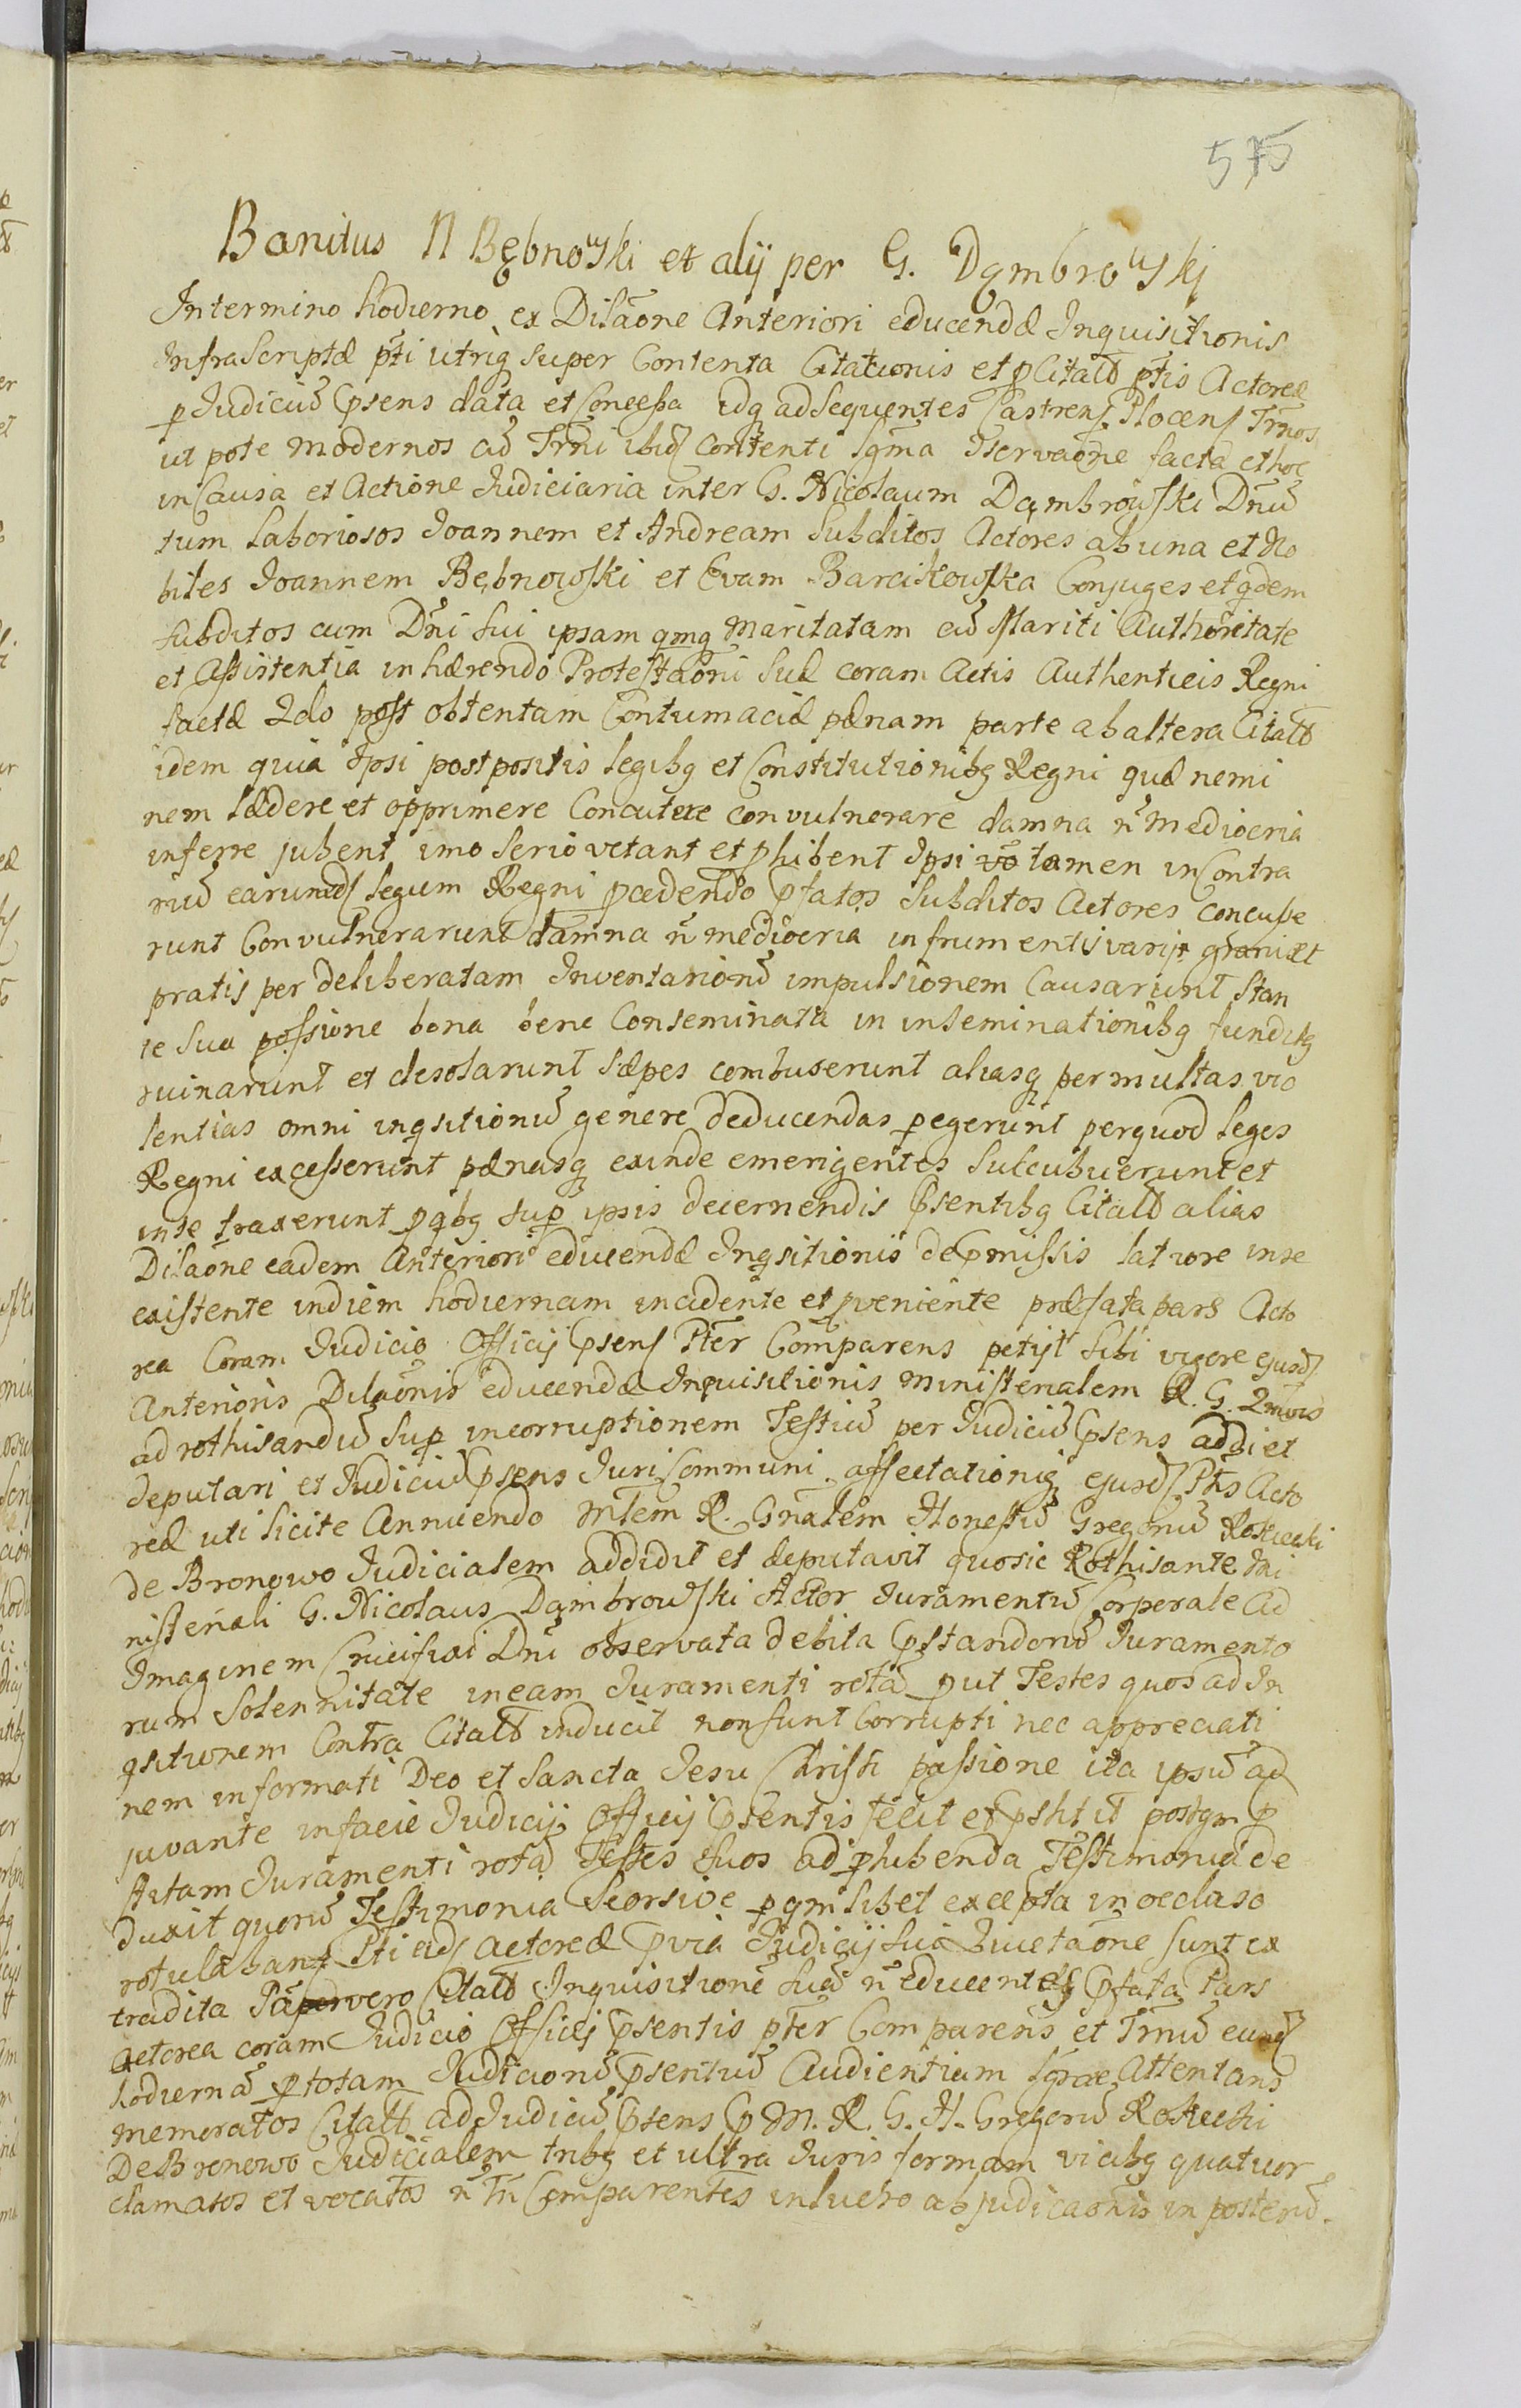 575
Banitus N Bębnowski et alij per G. Dąmbrowskj
In termino hodierno ex Dilãone Anteriori educendæ Inquisitionis
Infra Scriptæ pti utriq super Contenta Citationis et p Citatt ptis Actoreæ
p Judiciũ Psens data et Concessa idq ad Sequentes Castrens Plocens Trnos
ut pote modernos cũ Trni ibid contenti Sgma Jservaõne facta et hoc
in Causa et Actione Judiciaria inter G. Nicolaum Dąmbrowski Dnũ
tum Laboriosos Joannem et Andream Subditos Actores ab una et No
biles Joannem Bębnowski et Evam Barcikowska Conjuges et qdem
Subditos cum Dni sui ipsam qmq Maritatam cũ Mariti Authoritate
et Assistentia in hærendo Protestaõni suæ coram Actis Authenticis Regni
factæ 2do post obtentam Contumaciæ pænam parte ab altera Citatt
idem quia Ipsi postpositis legibq et Constitutionibq Regni quæ nemi
nem lædere et opprimere Concutere convulnerare damna ñ mediocria
inferre jubent imo serio vetant et phibent Ipsi vo tamen in Contra
riũ earumd legum Regni pcedendo Pfatos Subditos Actores concusse
runt Convulnerarunt damna ñ mediocria in frumentis varij grani et
pratis per deliberatam Inventarionũ impulsionem Causarunt Stan
te sua possione bona bene Conseminata in inseminationibq funditq
ruinarunt et desolarunt sæpes combuserunt aliasq permultas vio
lentias omni inqsitionũ genere deducendas pegerunt per quod leges
Regni excesserunt pænasq exinde emerigentes Sulcubuerunt et
in se traxerunt p qbq sup ipsis decernendis Psentibq Citatt alias
Dilaõne eadem Anteriori educendæ Inqsitionis de Pmissis latiore in se
existente in diem hodiernam incidente et pveniente præfata pars Acto
rea Coram Judicio Officij Psens Pter Comparens petijt sibi vigore ejusd
Anterioris Dilaõnis educendæ Inquisitionis Ministerialem R. G. 2mvis
ad rothisandũ sup incorruptionem Testiũ per Judiciũ Psens addi et
deputari et Judiciũ Psens Juri Communi affectationiq ejusd Ptis Acto
reæ uti licite Annuendo Mtem R. Gnalem Honestũ Gregoriũ Rościecki
de Bronowo Judicialem addidit et deputavit quo sic Rothisante Mi
nisteriali G. Nicolaus Dąmbrowski Actor Juramentũ Corperale ad
Imaginem Crucifixi Dni observata debita Pstandorũ Juramento
rum Solennitate in eam Juramenti rotã put Testes quos ad In
qsitionem Contra Citatt inducit non sunt Corrupti nec appreciati
nem informati Deo et Sancta Jesu Christi passione ita ipsũ ad
juvante in facie Judicij Officij Psentis fecit et Pstitit postqm P
stitam Juramenti rotã Testes suos ad phibenda Testimonia de
duxit quorũ Testimonia Seorsive p qmlibet excepta in occluso
rotula hanc Pti eid actoreæ P via Judicij sui Invetaõne sunt ex
tradita Pã vero Citatt Inquisitionẽ suã ñ educentes Pfata Pars
Actorea coram Judicio Officij Psentis pter Comparens et Trnũ eund
hodiernũ p totam Judicionũ Psentiũ Audientiam Attentans
memoratos Citatt ad Judiciũ Psens P M. R. G. H. Gregoriũ Rościecki
De Bronowo Judicialem tribq et ultra Juris formam vicibq quatuor
clamatos et vocatos ñ Tñ Comparentes in lucro adjudicaõnis in posterũ.